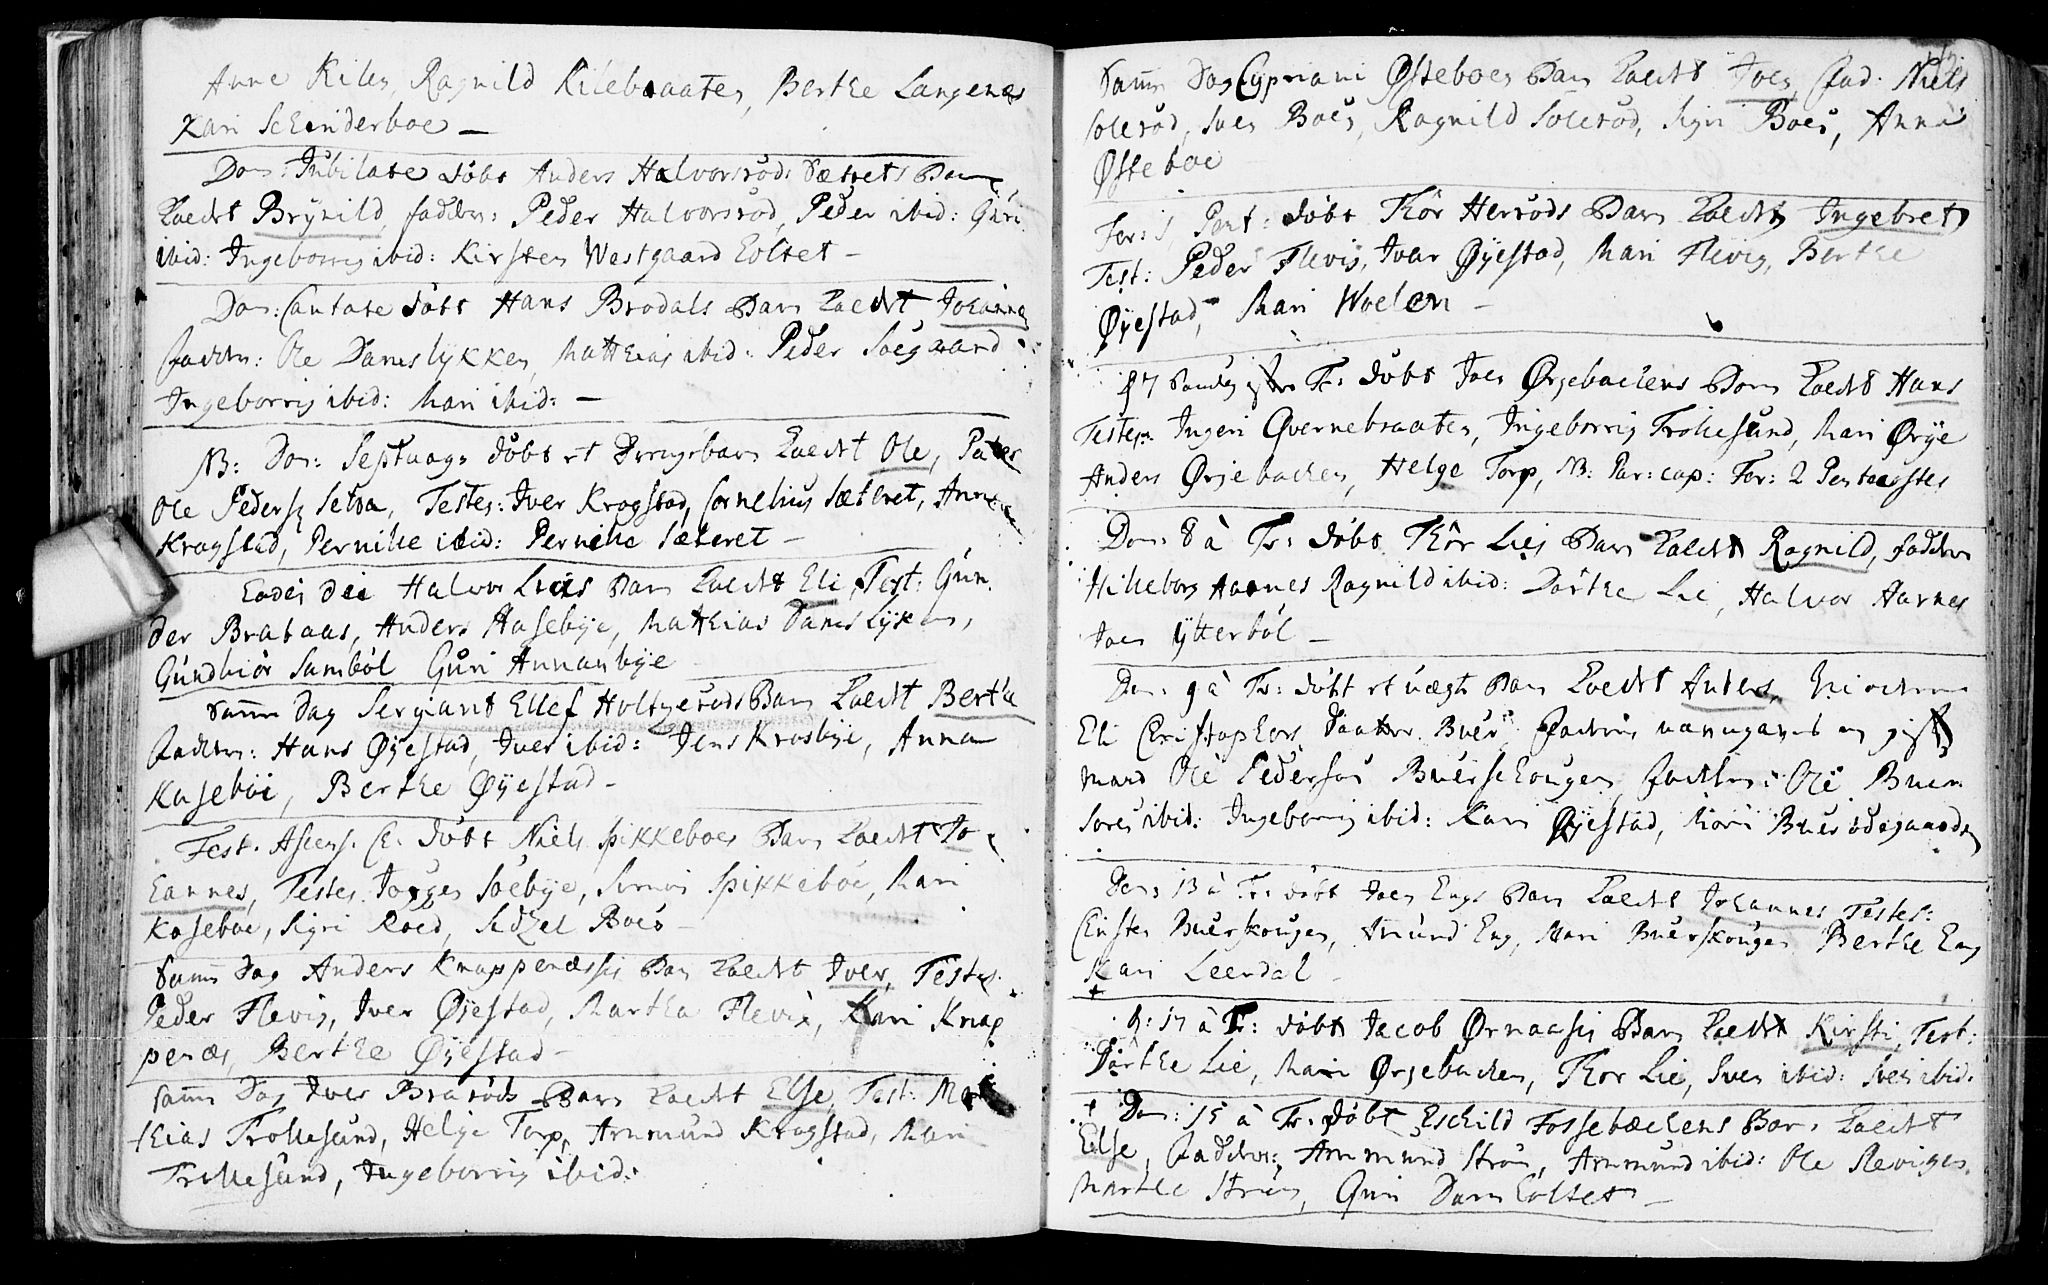 Anne Kiles, Ragnild Kilebraaten, Berthe Langenæs
Kari Schinderboe –
Dom: Jubilate döbt Anders Halvorsröd: Sætrets Barn
kaldt Brynild, faddere: Peder Halvorsröd, Peder ibid: Guri
ibid: Ingeborrig ibid: Kirsten Westgaard holtet –
Dom: Cantate döbt Hans Brodals Barn kaldt Johannes
faddere: Ole Damslykken, Mathias ibid: Peder Soegaard
Ingeborrig ibid: Mari ibid: –
NB: Dom: Septuag: döbt et Drengebarn kaldt Ole, Pater
Ole Peders: Testes: Iver Kragstad, Cornelius Sæteret, Anne
Kragstad, Pernille ibid: Pernille Sæteret –
Eodei die Halvor Lies Barn kaldt Eli, Test: Gun-
der Brataas, Anders Hasebye, Mathias Damslyken,
Gundhiör Samböl Guri Annanbye
Samme Dag Sergiant Ellef Holtgeröds Barn kaldt Bertha
Faddere: Hans Øyestad, Iver ibid: Jens Krosbye, Anna
Kaseböe, Berthe Øyestad –
Fest. Ascens. C. döbt Niels Spikkeboes Barn kaldt Jo
hannes, Testes Jörgen Soebye, Simon Spikkeboe, Mari
Kaseboe, Sigri Roed, Sidzel Boes –
Samme Dag Anders Knappenæssis Barn kaldt Iver, Testes
Peder Flevig, Iver Øyestad, Martha Flevig, Kari Knap
penæs, Berthe Øyestad –
Samme Dag Iver Braröds Barn kaldt Else, Test: Mat
thias Trollesund, Helge Torp, Ammund Kragstad, Mari
Trollesund, Ingeborrig ibid:
Samme Dag Cypriani Østeboes Barn kaldt Joen, fad: Niels
Soleröd, Sven Boes, Ragnild Soleröd, Sigri Boes, Anne
Østeboe
Fer: 1 Pent: döbt Thör Herröds Barn kaldt Ingebret
Test: Peder Flevig, Iver Øyestad, Mari Flevig, Berthe
Øyestad, Mari Woelen –
7 Sondag Tr: döbt Joen Ørjebachens Barn kaldt Hans
Testes: Ingeri Qvernebraaten, Ingeborrig Trollesund, Mari Ørye
Anders Ørjebachen, Helge Torp, NB: Par: cap: Fer: 2 Pentecostes
Dom: 8 à Tr: döbt Thör Lies Barn kaldt Ragnild, faddere
Hilleborg Aarnes Ragnild ibid: Dorthe Lie, Halvor Aarnes
Joen Ytterböl –
Dom: 9 à Tr: döbt et uægte Barn kaldt Anders,
Eli Christophers Daatter Buer, Faderen navngaves en gift
mand Ole Pedersøn Buerschougen, faddere: Ole Buer
Sören ibid: Ingeborrig ibid: Kari Øyestad, Kari Buer ödegaarden
Dom: 13 à Tr: döbt Joen Engs Barn kaldt Johannes Testes:
Christen Buerskougen, Amund Eng, Mari Buerskougen Berthe Eng
Kari Leerdal –
D: 17 à Tr: döbt Jacob Ørnaasis Barn kaldt Kirsti, Test:
Dorthe Lie, Mari Ørjebachen, Thor Lie, Sven ibid: Sven ibid:
Dom: 15 à Tr: döbt Eschild Fossebæchens Barn kaldt
Else, Faddere: Ammund Ström, Ammund ibid: Ole Revigen
Marthe Ström, Guri Damholtet –